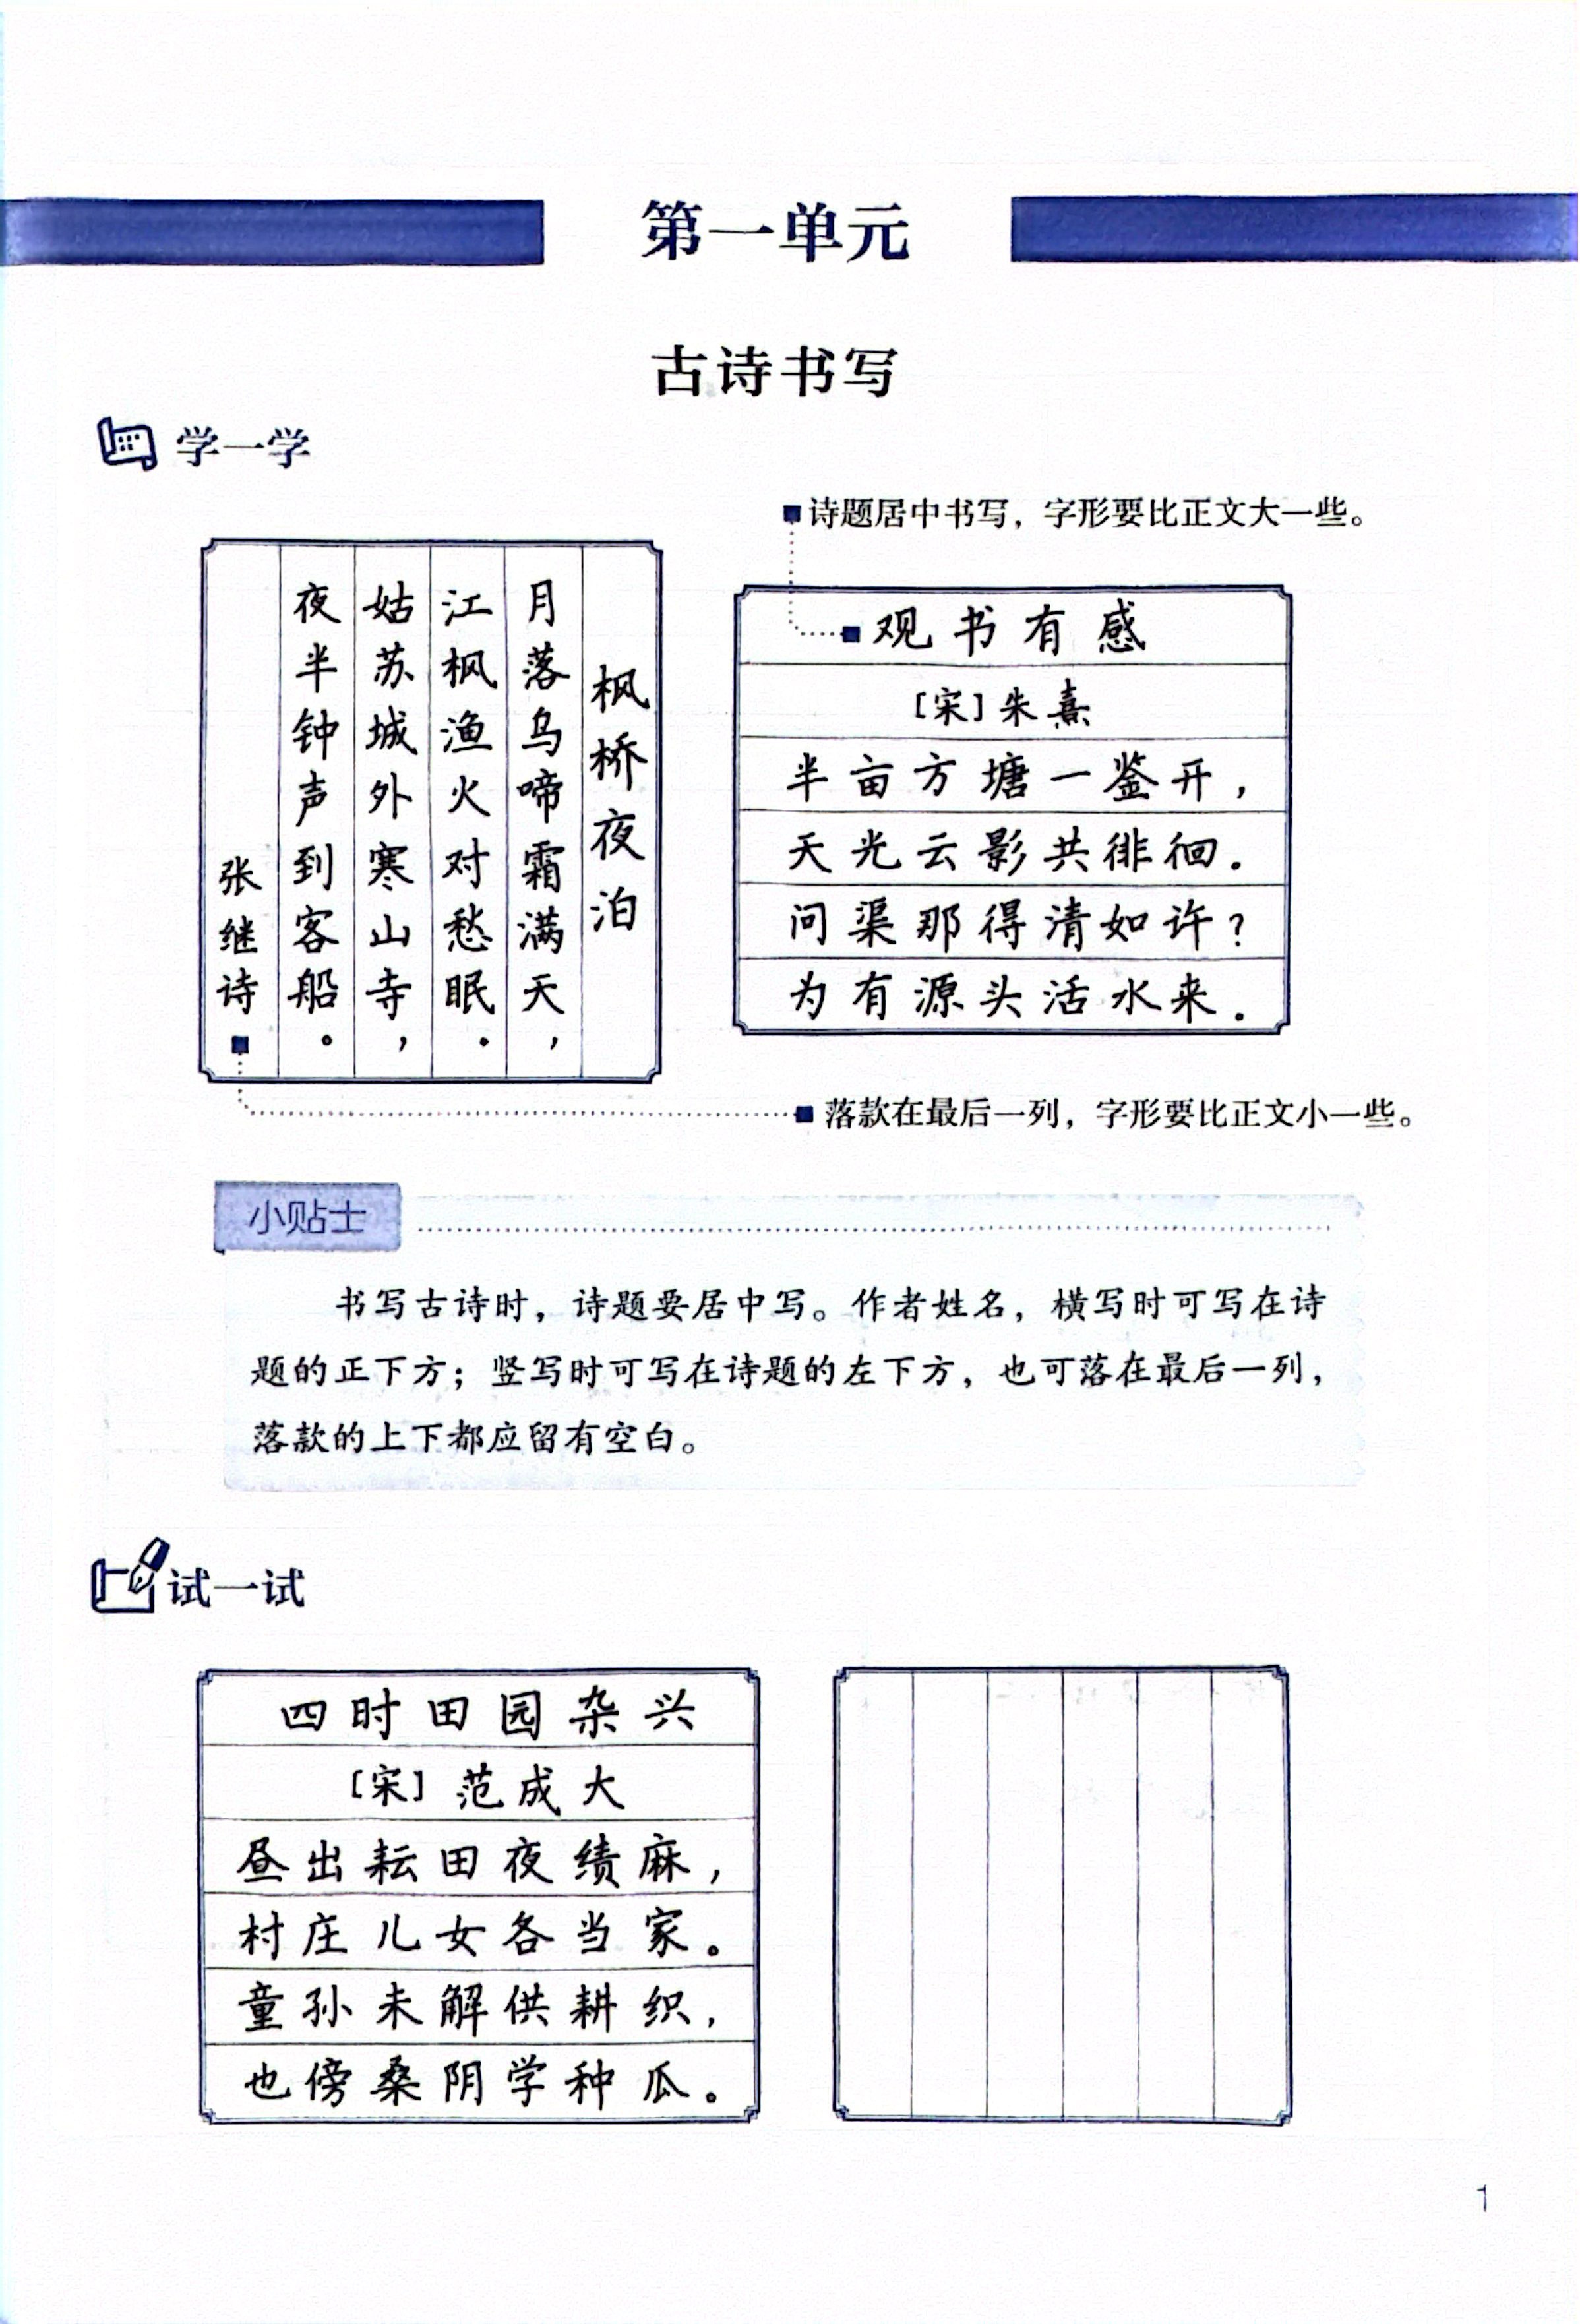 第一单元
古诗书写
学一学
诗题居中书写，字形要比正文大一些。
枫桥夜泊
月落乌啼霜满天，
江枫渔火对愁眠。
姑苏城外寒山寺，
夜半钟声到客船。
张继诗
观书有感
［宋］朱熹
半亩方塘一鉴开，
天光云影共徘徊。
问渠那得清如许？
为有源头活水来。
落款在最后一列，字形要比正文小一些。
小贴士
书写古诗时，诗题要居中写。作者姓名，横写时可写在诗
题的正下方；竖写时可写在诗题的左下方，也可落在最后一列，
落款的上下都应留有空白。
试一试
四时田园杂兴
［宋］范成大
昼出耘田夜绩麻，
村庄儿女各当家。
童孙未解供耕织，
也傍桑阴学种瓜。
1